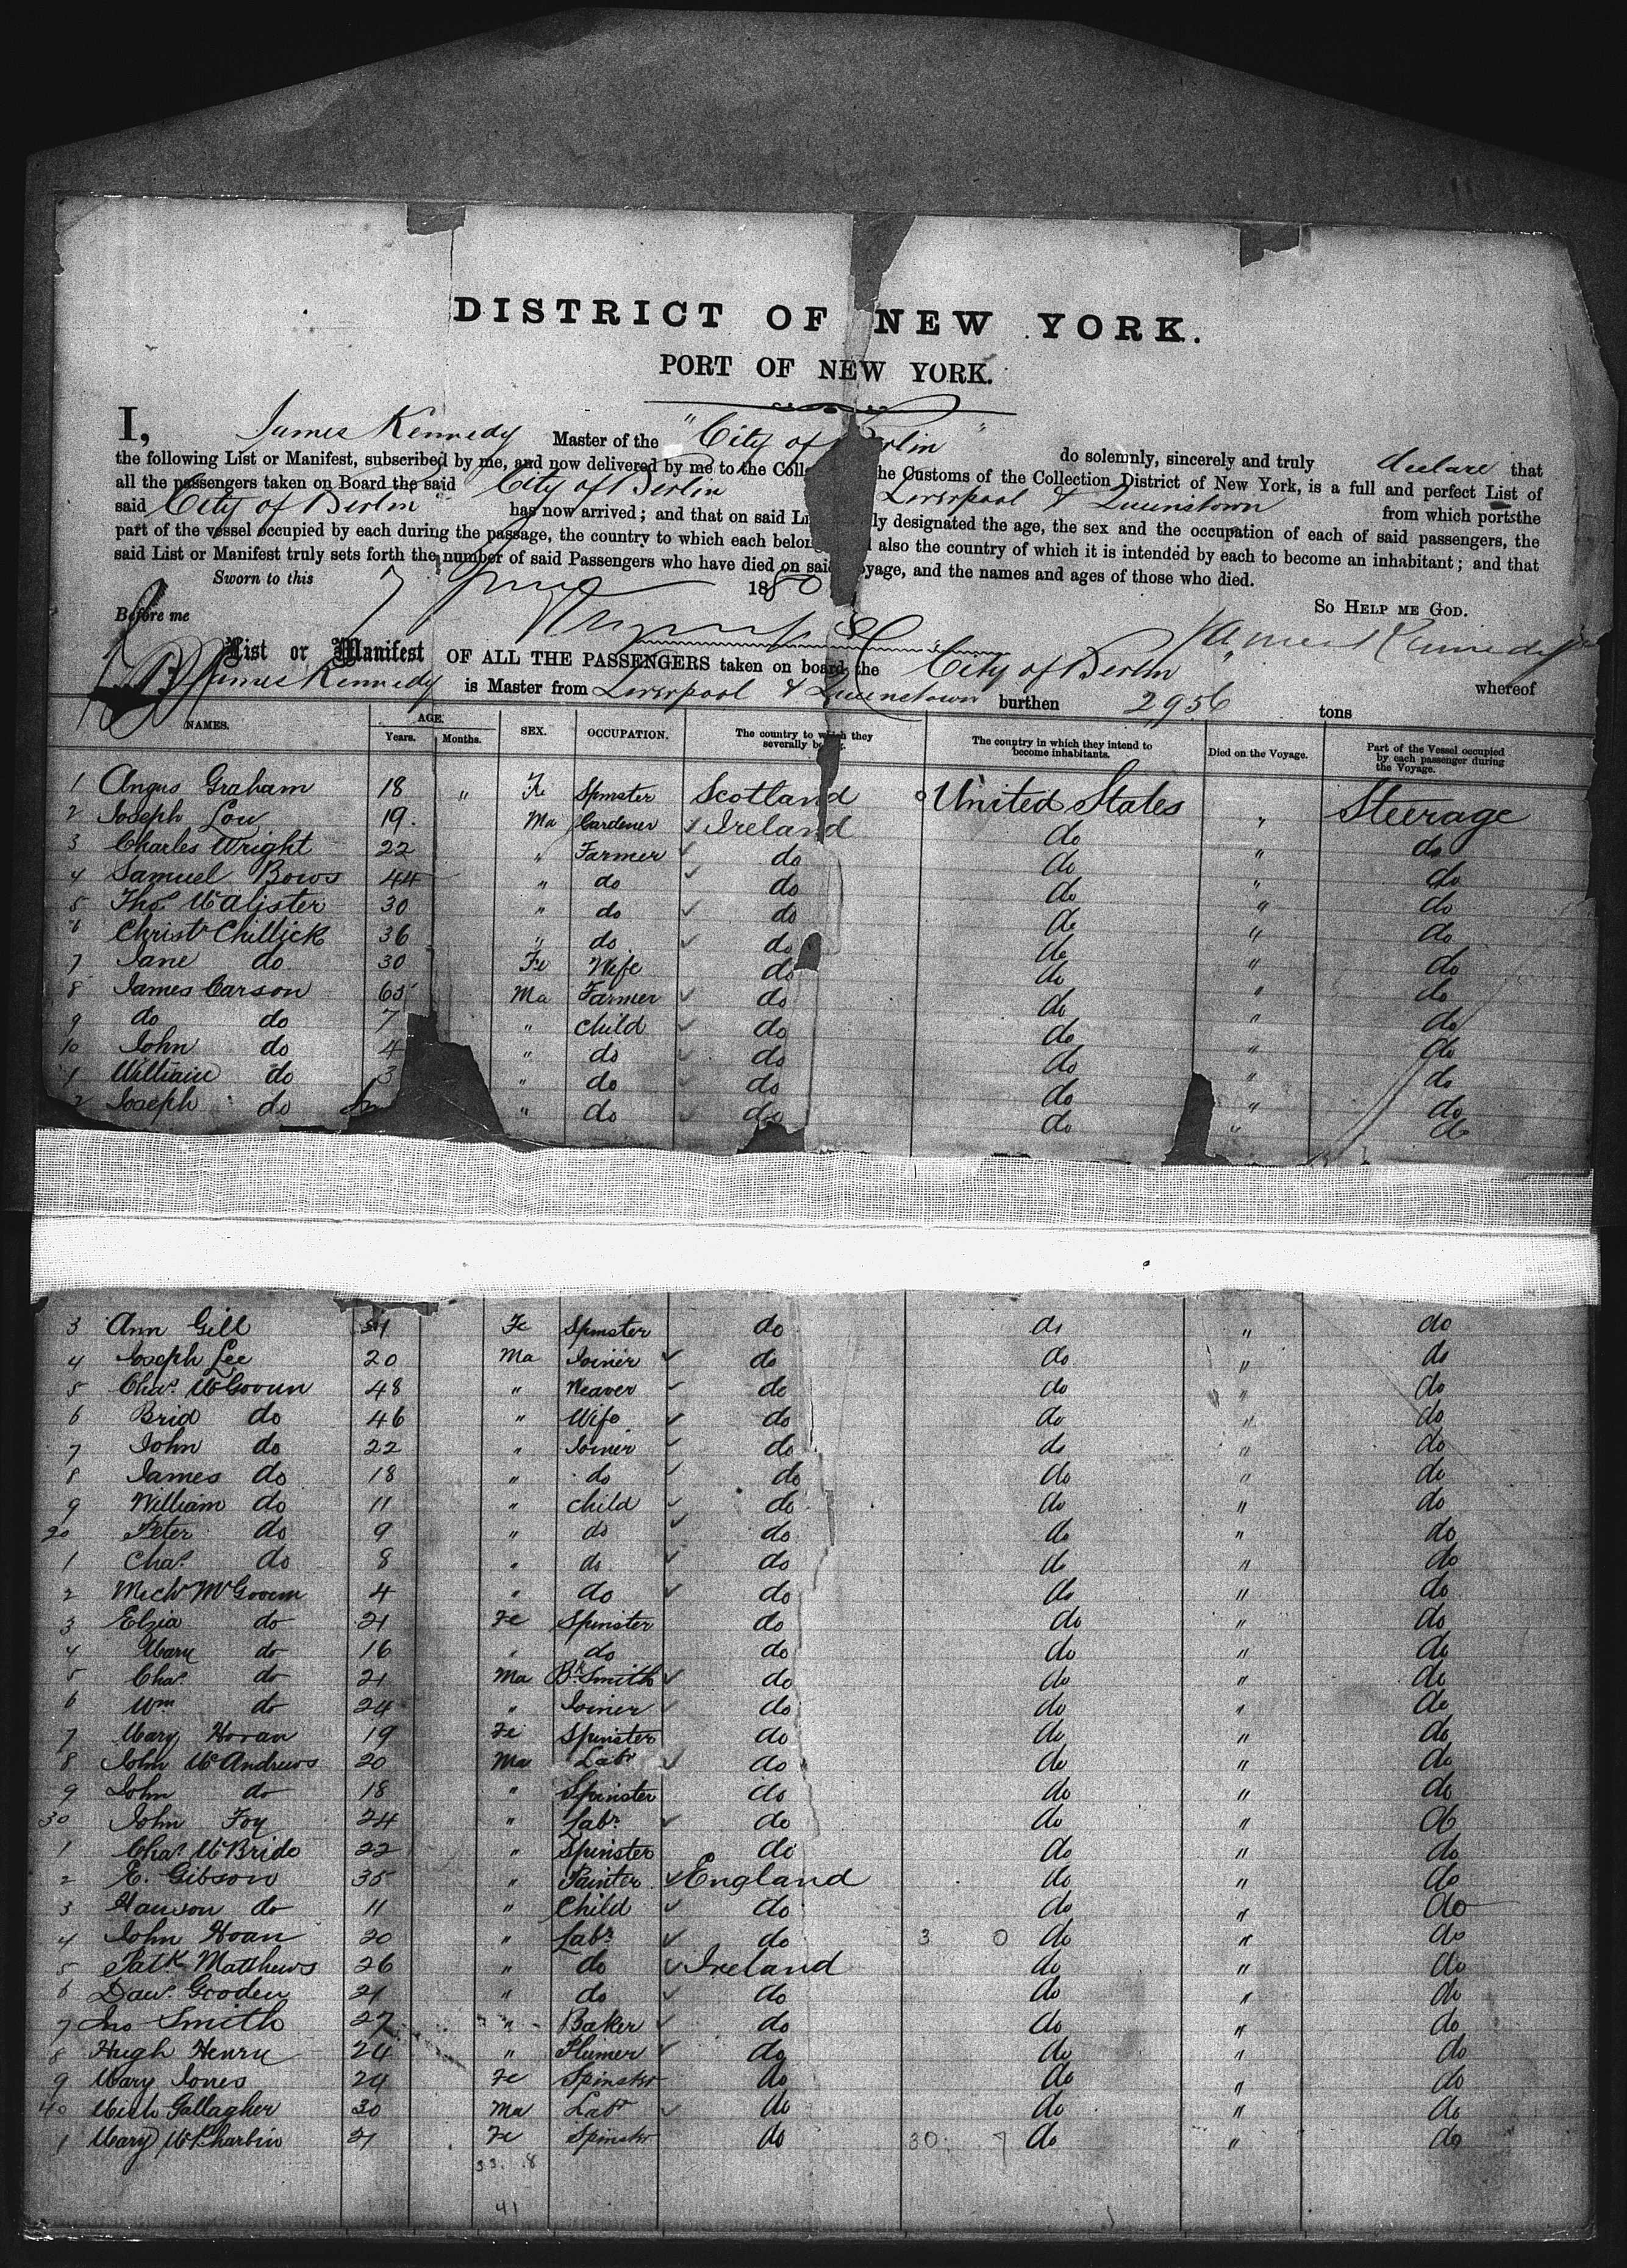 DISTRICT OF NEW YORK.
PORT OF NEW YORK.
I, James Kennedy Master of the "City of Berlin" do solemnly, sincerely and truly declare that
the following List or Manifest, subscribed by me, and now delivered by me to the Coll he Customs of the Collection District of New York, is a full and perfect List of
all the passengers taken on Board the said City of Berlin Liverpool & Queenstown from which ports the
said City of Berlin has now arrived; and that on said Li ly designated the age, the sex and the occupation of each of said passengers, the
part of the vessel occupied by each during the passage, the country to which each belon also the country of which it is intended by each to become an inhabitant; and that
said List or Manifest truly sets forth the number of said Passengers who have died on said oyage, and the names and ages of those who died.
Sworn to this 7 June 1880
So Help me God.
Before me
James Kennedy
List or Manifest OF ALL THE PASSENGERS taken on board the City of Berlin whereof
James Kennedy is Master from Liverpool & Queenstown burthen 2956 tons
NAMES. AGE. Years. Months. SEX. OCCUPATION. The country to which they severally belong. The country in which they intend to become inhabitants. Died on the Voyage. Part of the Vessel occupied by each passenger during the Voyage.
1 Angus Graham 18 " Fe Spinster Scotland United States " Steerage
2 Joseph Low 19 Ma Gardener Ireland do " do
3 Charles Wright 22 " Farmer do do " do
4 Samuel Bows 44 " do do do " do
5 Thos. McAlister 30 " do do do " do
6 Christr Chillick 36 " do do do " do
7 Jane do 30 Fe Wife do do " do
8 James Carson 65 Ma Farmer do do " do
9 do do 7 " Child do do " do
10 John do 4 " do do do " do
1 William do 3 " do do do " do
2 Joseph do " do do do " do
3 Ann Gill Fe Spinster do do " do
4 Joseph Lee 20 Ma Joiner do do " do
5 Chas. McGovern 48 " Weaver do do " do
6 Brid do 46 " Wife do do " do
7 John do 22 " Joiner do do " do
8 James do 18 " do do do " do
9 William do 11 " Child do do " do
20 Peter do 9 " do do do " do
1 Chas. do 8 " do do do " do
2 Michl McGovern 4 " do do do " do
3 Elzia do 21 Fe Spinster do do " do
4 Mary do 16 " do do do " do
5 Chas. do 21 Ma Bk Smith do do " do
6 Wm do 24 " Joiner do do " do
7 Mary Horan 19 Fe Spinster do do " do
8 John McAndrews 20 Ma Labr do do " do
9 John do 18 " Spinster do do " do
30 John Foy 24 " Labr do do " do
1 Chas. McBride 22 " Spinster do do " do
2 E. Gibson 35 " Painter England do " do
3 Hawson do 11 " Child do do " do
4 John Hoan 20 " Labr do 3 0 do " do
5 Patk Matthews 26 " do Ireland do " do
6 Dav. Gooden 21 " do do do " do
7 Jno Smith 27 " Baker do do " do
8 Hugh Henry 24 " Plumer do do " do
9 Mary Jones 24 Fe Spinster do do " do
40 Michl Gallagher 30 Ma Labr do do " do
1 Mary McPharlin 21 Fe Spinster do 30 7 do " do
33. 8
41